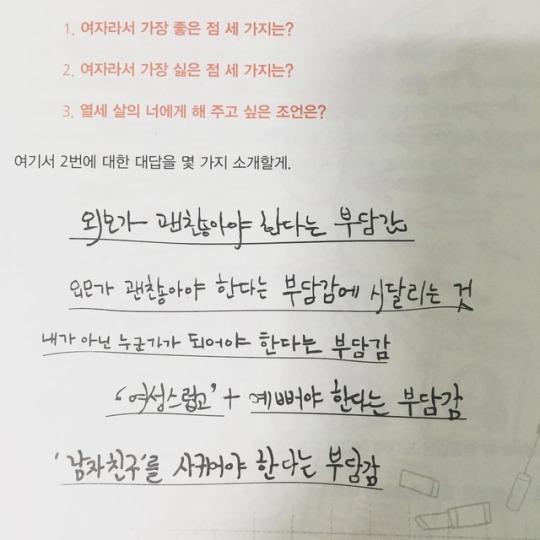 1. 여자라서 가장 좋은 점 세 가지는?
2. 여자라서 가장 싫은 점 세 가지는?
3. 열세 살의 너에게 해 주고 싶은 조언은?
여기서 2번에 대한 대답을 몇 가지 소개할게.
외모가 괜찮아야 한다는 부담감
외모가 괜찮아야 한다는 부담감에 시달리는 것
내가 아닌 누군가가 되어야 한다는 부담감
‘여성스럽고’ + 예뻐야 한다는 부담감
‘남자친구’를 사귀어야 한다는 부담감